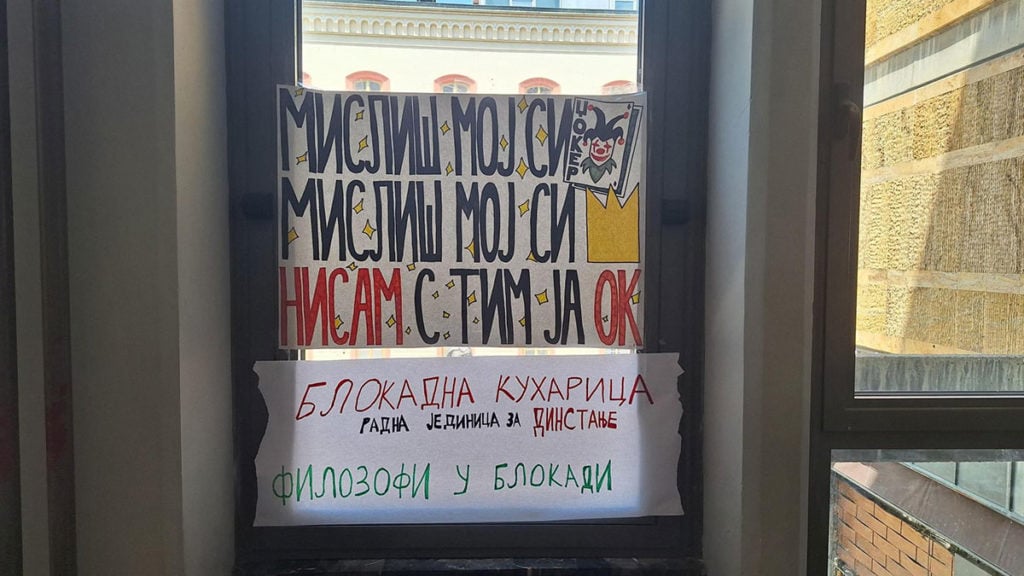 МИСЛИШ МОЈ СИ ЏОКЕР
МИСЛИШ МОЈ СИ
НИСАМ С ТИМ ЈА ОК
БЛОКАДНА КУХАРИЦА
РАДНА ЈЕДИНИЦА ЗА ДИНСТАЊЕ
ФИЛОЗОФИ У БЛОКАДИ